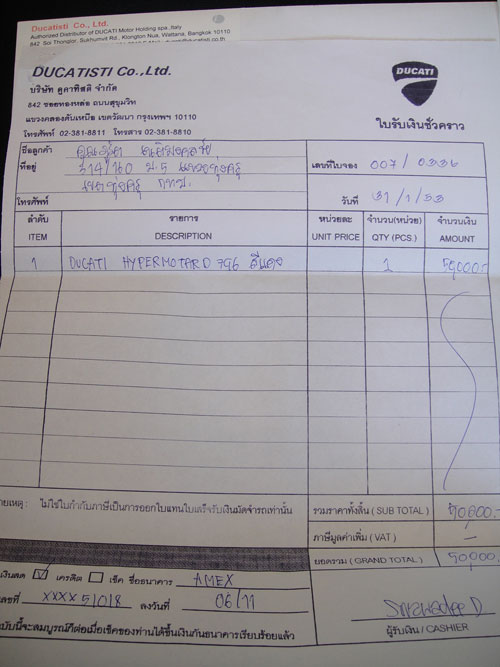 Ducatisti Co., Ltd.
Authorized Distributor of DUCATI Motor Holding spa., Italy
842 Soi Thonglor, Sukhumvit Rd., Klongton Nua, Wattana, Bangkok 10110
DUCATISTI Co.,Ltd.
DUCATI
บริษัท ดูคาทิสติ จำกัด
842 ซอยทองหล่อ ถนนสุขุมวิท
แขวงคลองตันเหนือ เขตวัฒนา กรุงเทพฯ 10110
โทรศัพท์ 02-381-8811 โทรสาร 02-381-8810
ใบรับเงินชั่วคราว
ชื่อลูกค้า คุณ
ที่อยู่ 314/ ม.5 แขวงทุ่งครุ
เขตทุ่งครุ กทม.
เลขที่ใบจอง 007/0336
โทรศัพท์
วันที่ 31/1/53
ลำดับ รายการ หน่วยละ จำนวน(หน่วย) จำนวนเงิน
ITEM DESCRIPTION UNIT PRICE QTY (PCS.) AMOUNT
1 DUCATI HYPERMOTARD 796 สีแดง 1 50,000.-
ายเหตุ: ไม่ใช่ใบกำกับภาษีเป็นการออกใบแทนใบเสร็จรับเงินมัดจำรถเท่านั้น
รวมราคาทั้งสิ้น ( SUB TOTAL ) 50,000.-
ภาษีมูลค่าเพิ่ม ( VAT ) -
ยอดรวม ( GRAND TOTAL ) 50,000.-
เงินสด เครดิต เช็ค ชื่อธนาคาร AMEX
ลขที่ XXXX 51018 ลงวันที่ 06/11
ฉบับนี้จะสมบูรณ์ก็ต่อเมื่อเช็คของท่านได้ขึ้นเงินกับธนาคารเรียบร้อยแล้ว
ผู้รับเงิน / CASHIER